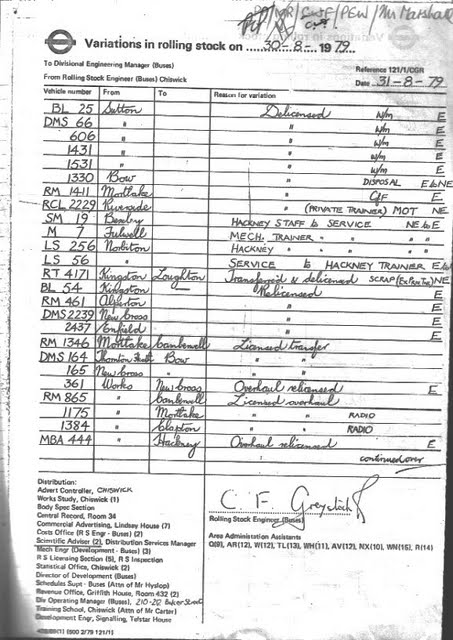 Variations in rolling stock on 30-8- 19 79
To Divisional Engineering Manager (Buses)
From Rolling Stock Engineer (Buses) Chiswick
Reference 121/1/CGR
Date 31-8-79
Vehicle number From To Reason for variation
BL 25 Sutton Delicensed W/m E
DMS 66 " " W/m E
606 " " W/m E
1431 " " W/m E
1531 " " W/m E
1330 Bow " DISPOSAL E to NE
RM 1411 Mortlake " E
RCL 2229 Riverside " (PRIVATE TRAINER) MOT NE
SM 19 Bexley HACKNEY STAFF to SERVICE NE to E
M 7 Fulwell MECH. TRAINER " " "
LS 256 Norbiton HACKNEY " " "
LS 56 " SERVICE to HACKNEY TRAINER E to
RT 4171 Kingston Loughton Transferred & delicensed SCRAP NE
BL 54 Kingston — Relicensed E
RM 461 Alperton " E
DMS 2239 New Cross " E
2437 Enfield " E
RM 1346 Mortlake Camberwell Licensed transfer
DMS 164 Thornton Heath Bow " "
165 New Cross " " "
361 Works New Cross Overhaul relicensed E
RM 865 " Camberwell Licensed overhaul
1175 " Mortlake " " RADIO
1384 " Clapton " " RADIO
MBA 444 " Hackney Overhaul relicensed E
continued over
Distribution:
Advert Controller, CHISWICK
Works Study, Chiswick (1)
Body Spec Section
Central Record, Room 34
Commercial Advertising, Lindsey House (7)
Costs Office (R S Engr - Buses) (2)
Scientific Adviser (2), Distribution Services Manager
Mech Engr (Development - Buses) (3)
R S Licensing Section (5), R S Inspection
Statistical Office, Chiswick (2)
Director of Development (Buses)
Schedules Supt - Buses (Attn of Mr Hyslop)
Revenue Office, Griffith House, Room 432 (2)
Operating Manager (Buses), 210-212 Baker Street
Training School, Chiswick (Attn of Mr Carter)
Development Engr, Signalling, Telstar House
C. F. Greystock
Rolling Stock Engineer (Buses)
Area Administration Assistants
Q(9), AR(12), W(12), TL(13), WH(11), AV(12), NX(10), WN(15), R(14)